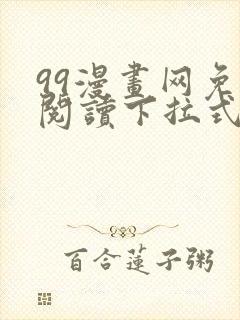 99漫畫网免
閱讀下拉式
百合蓮子粥